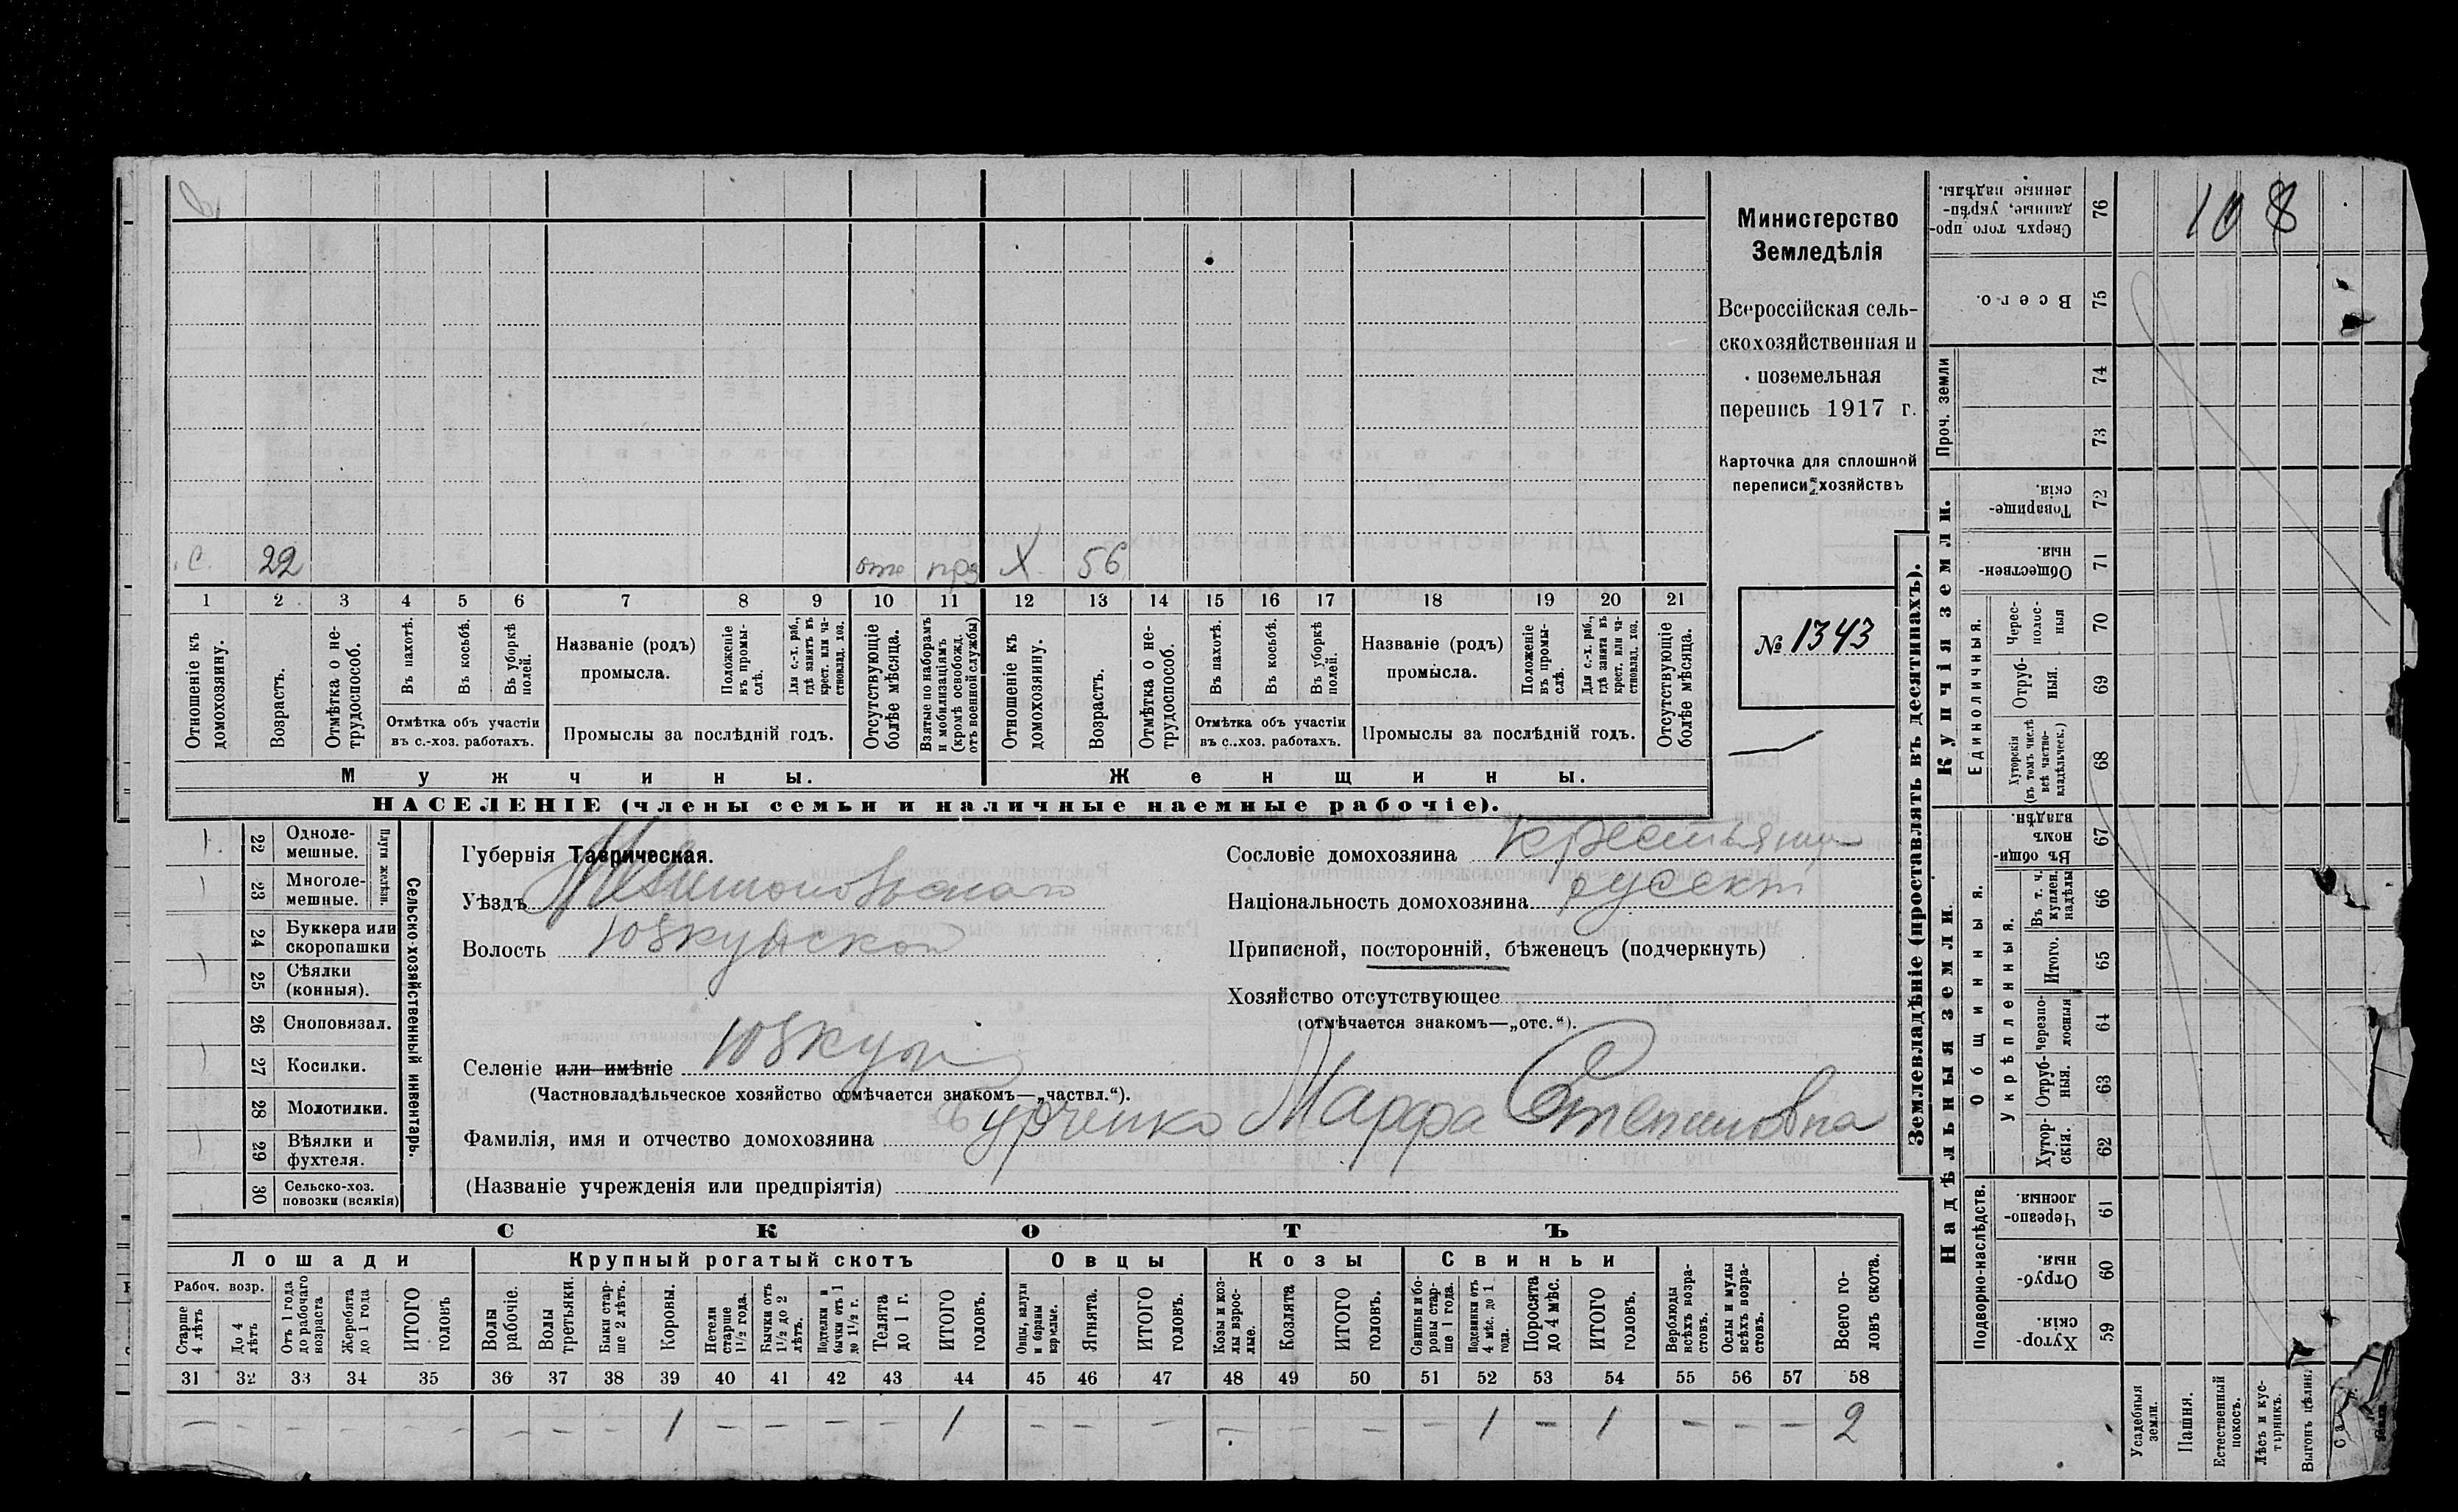 Министерство
Земледѣлія
Всероссійская сель-
скохозяйственная и
поземельная
перепись 1917 г.
Карточка для сплошной
переписи хозяйствъ
№ 1343
с. 22 отс прз Х 56
1 2 3 4 5 6 7 8 9 10 11 12 13 14 15 16 17 18 19 20 21
Отношеніе къ домохозяину.
Возрастъ.
Отмѣтка о не-трудоспособ.
Въ пахотѣ.
Въ косьбѣ.
Въ уборкѣ полей.
Отмѣтка объ участіи
въ с.-хоз. работахъ.
Названіе (родъ)
промысла.
Положеніе въ промы-слѣ.
Для с.-х. раб., гдѣ занятъ въ крест. или ча-стновлад. хоз.
Промыслы за послѣдній годъ.
Отсутствующіе болѣе мѣсяца.
Взятые по наборамъ и мобилизаціямъ (кромѣ освобожд. отъ военной службы)
Отношеніе къ домохозяину.
Возрастъ.
Отмѣтка о не-трудоспособ.
Въ пахотѣ.
Въ косьбѣ.
Въ уборкѣ полей.
Отмѣтка объ участіи
въ с.-хоз. работахъ.
Названіе (родъ)
промысла.
Положеніе въ промы-слѣ.
Для с.-х. раб., гдѣ занята въ крест. или ча-стновлад. хоз.
Промыслы за послѣдній годъ.
Отсутствующіе болѣе мѣсяца.
Мужчины.
Женщины.
НАСЕЛЕНІЕ (члены семьи и наличные наемные рабочіе).
22 Одноле-мешные.
23 Многоле-мешные.
Плуги желѣзн.
24 Буккера или скоропашки
25 Сѣялки (конныя).
26 Сноповязал.
27 Косилки.
28 Молотилки.
29 Вѣялки и фухтеля.
30 Сельско-хоз. повозки (всякія)
Сельско-хозяйственный инвентарь.
Губернія Таврическая.
Уѣздъ Мелитопольскаго
Волость Юзкуйской
Селеніе или имѣніе Юзкуи
(Частновладѣльческое хозяйство отмѣчается знакомъ—„частвл.“).
Фамилія, имя и отчество домохозяина Бурченко Марфа Степановна
(Названіе учрежденія или предпріятія)
Сословіе домохозяина крестьянин
Національность домохозяина русскі
Приписной, посторонній, бѣженецъ (подчеркнуть)
Хозяйство отсутствующее
(отмѣчается знакомъ—„отс.“).
СКОТЪ
Лошади
Крупный рогатый скотъ
Овцы
Козы
Свиньи
Рабоч. возр.
Старше 4 лѣтъ
До 4 лѣтъ
Отъ 1 года до рабочаго возраста
Жеребята до 1 года
ИТОГО головъ
Волы рабочіе.
Волы третьяки.
Быки стар-ше 2 лѣтъ.
Коровы.
Нетели старше 1½ года.
Бычки отъ 1½ до 2 лѣтъ.
Подтелки и бычки отъ 1 до 1½ г.
Телята до 1 г.
ИТОГО головъ.
Овцы, валухи и бараны взрослые.
Ягнята.
ИТОГО головъ.
Козы и коз-лы взрос-лые.
Козлята
ИТОГО головъ.
Свиньи и бо-ровы стар-ше 1 года.
Подсвинки отъ 4 мѣс. до 1 года.
Поросята до 4 мѣс.
ИТОГО головъ.
Верблюды всѣхъ возра-стовъ.
Ослы и мулы всѣхъ возра-стовъ.
Всего го-ловъ скота.
31 32 33 34 35 36 37 38 39 40 41 42 43 44 45 46 47 48 49 50 51 52 53 54 55 56 57 58
— — — — — — — — 1 — — — — 1 — — — — — — — 1 — 1 — — — 2
Землевладѣніе (проставлять въ десятинахъ).
Купчія земли.
Надѣльныя земли
Проч. земли
Единоличныя.
Общинныя.
Укрѣпленныя.
Подворно-наслѣдств.
Сверхъ того про-данные, укрѣп-ленные надѣлы. 76
108
Всего. 75
74
73
Товарище-скія. 72
Обществен-ныя 71
Черес-полос-ныя 70
Отруб-ныя. 69
Хуторскія (въ томъ числѣ всѣ частно-владѣльческ.) 68
Въ общи-номъ владѣн. 67
Въ т. ч. куплен. надѣлы 66
Итого. 65
Черезпо-лосныя 64
Отруб-ныя. 63
Хутор-скія. 62
Черезпо-лосныя. 61
Отруб-ныя. 60
Хутор-скія. 59
Усадебныя земли.
Пашня.
Естественный покосъ.
Лѣсъ и кус-тарникъ.
Выгонъ цѣлин.